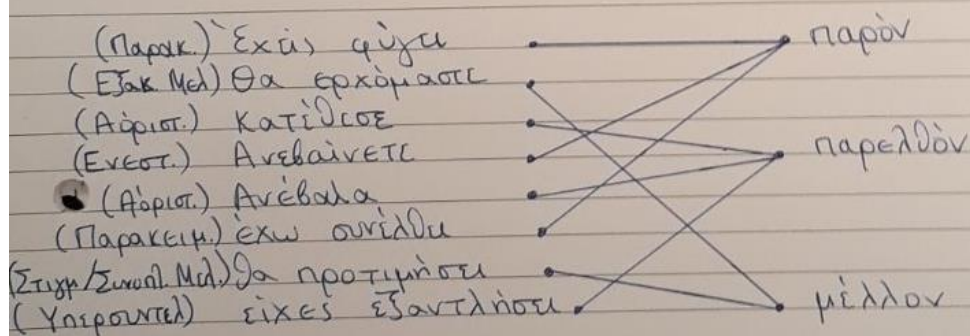 (Παρακ.) Έχεις φύγει
παρόν
(Εξακ. Μελ) Θα ερχόμαστε
(Αόριστ.) Κατέθεσε
(Ενεστ.) Ανεβαίνετε
παρελθόν
(Αόριστ.) Ανέβαλα
(Παρακειμ.) έχω συνέλθει
(Στιγμ/Συνοπτ. Μελ.) θα προτιμήσει
(Υπερσυντελ) είχες εξαντλήσει
μέλλον